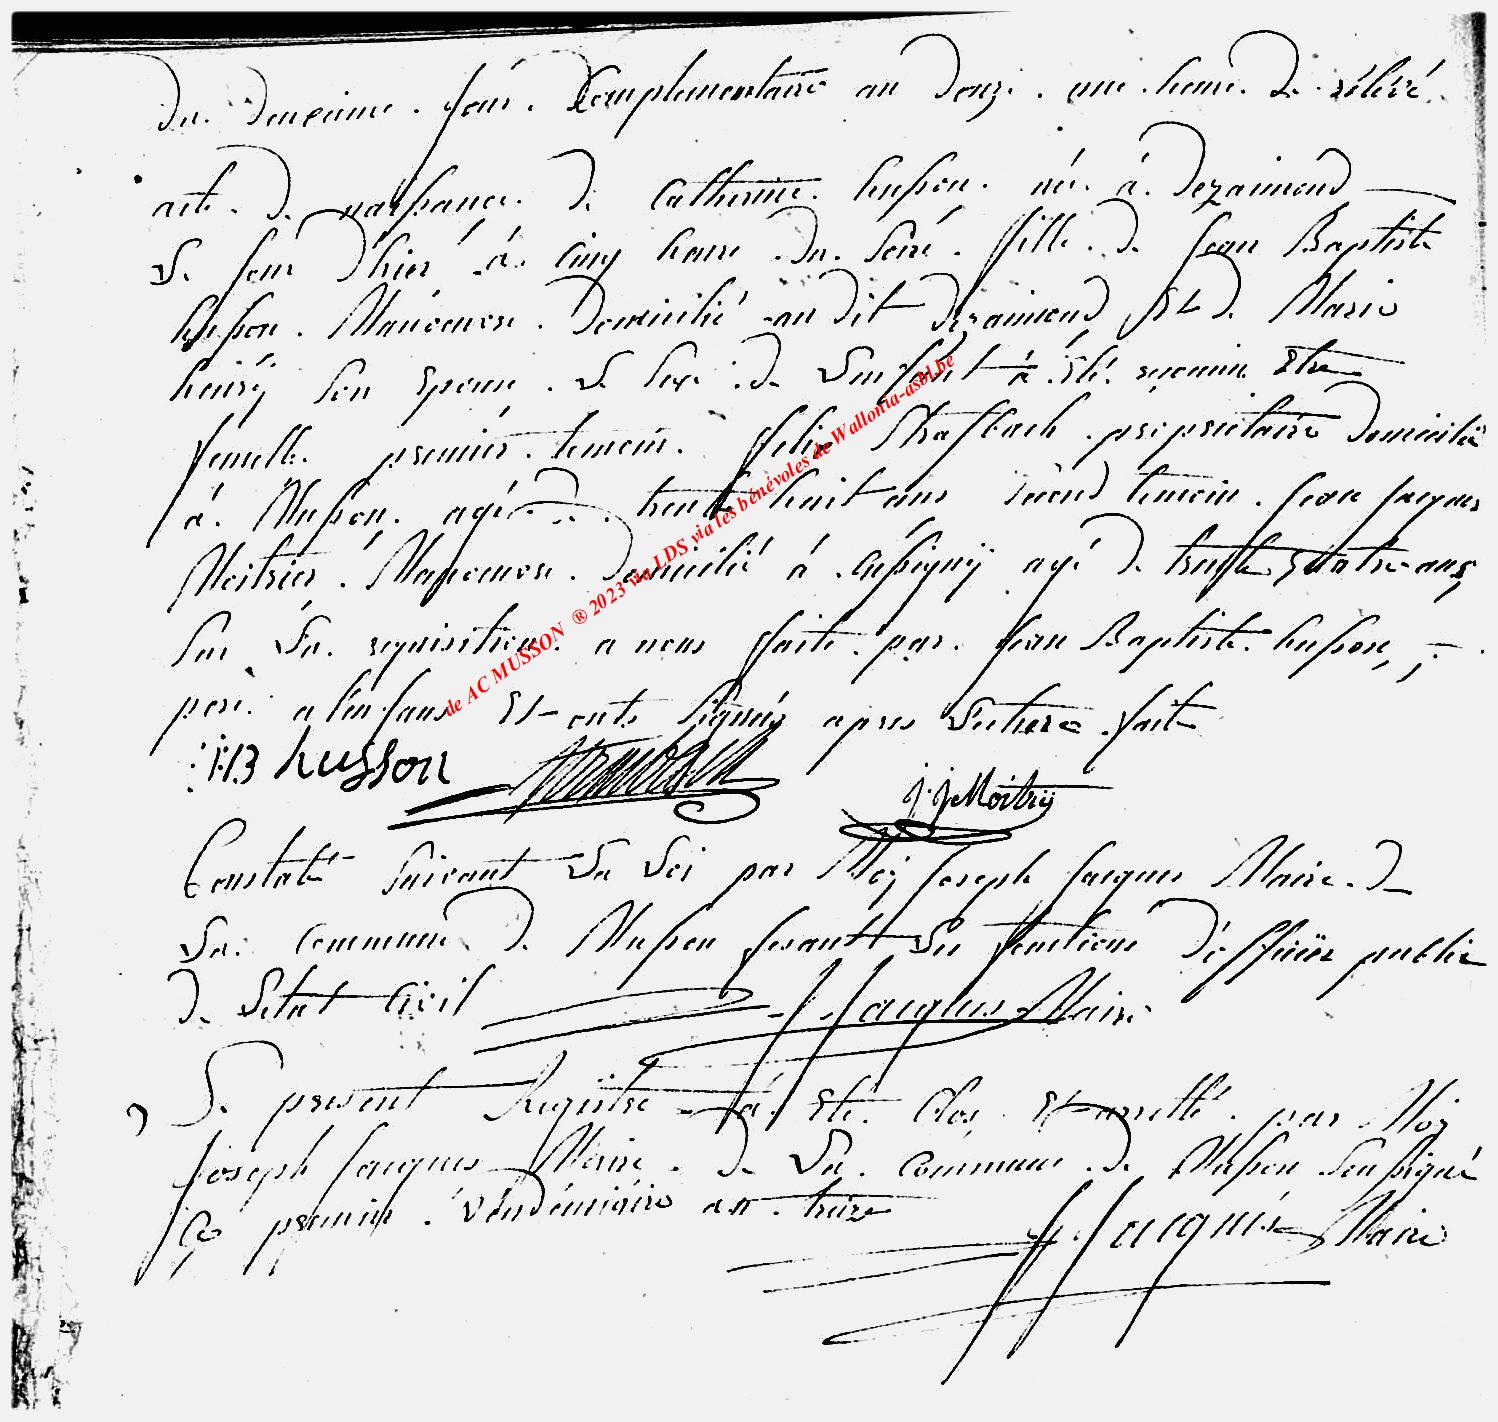 du deuxieme jour Complementaire an douze une heure de rélévé
acte de naissance de Catherine husson née à dezaimond
le jour d'hier à cinq heure du soire fille de Jean Baptiste
husson Manoeuvre domicilié au dit dezaimond Et de Marie
henrÿ son Epouse le sexe de l'enfant à été reconnu Etre
femelle premier temoin felix propriétaire domicilié
à Musson agé de trente huit ans second temoin jean jacques
Meitrier Manoeuvre domicilié à agé de trente quatre ans
sur la requisition a nous faite par Jean Baptiste husson
pere a l'enfans Et onts signéz apres lecture faite
JHB husson
j j Moitrÿ
Constaté suivant la loi par Moÿ joseph jacques Maire de
la commune de Musson fesant les fonctions d'officier public
de l'etat Civil J Jacques Maire
Le present Registre à été Clos Et arretté par Moÿ
joseph jacques Maire de la commune de Musson soussigné
Ce premier vendémiaire an treize J Jacques Maire
de AC MUSSON ® 2023 via LDS via les bénévoles de Wallonia-asbl.be